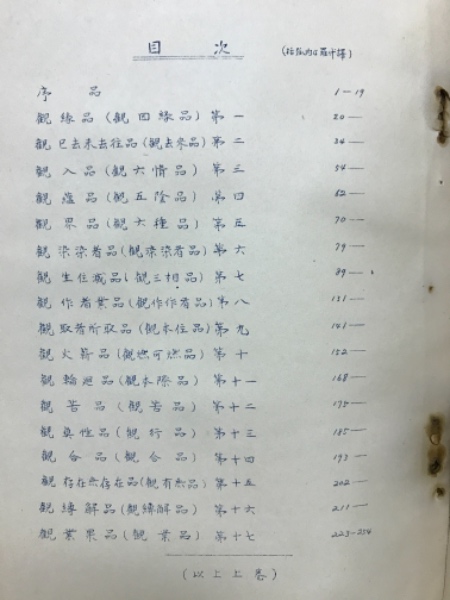 目 次 (括弧內は羅什譯)
序 品 1-19
観緣品(観四緣品)第一 20—
観已去未去往品(観去来品)第二 34—
観入品(観六情品)第三 54—
観蘊品(観五陰品)第四 62—
観界品(観六種品)第五 70—
観染染者品(観染染者品)第六 79—
観生住滅品(観三相品)第七 89—
観作者業品(観作作者品)第八 131—
観取者所取品(観本住品)第九 141—
観火薪品(観燃可燃品)第十 152—
観輪廻品(観本際品)第十一 168—
観苦品(観苦品)第十二 175—
観真性品(観行品)第十三 185—
観合品(観合品)第十四 193—
観存在無存在品(観有無品)第十五 202—
観縛解品(観縛解品)第十六 211—
観業果品(観業品)第十七 223-254
(以上上卷)